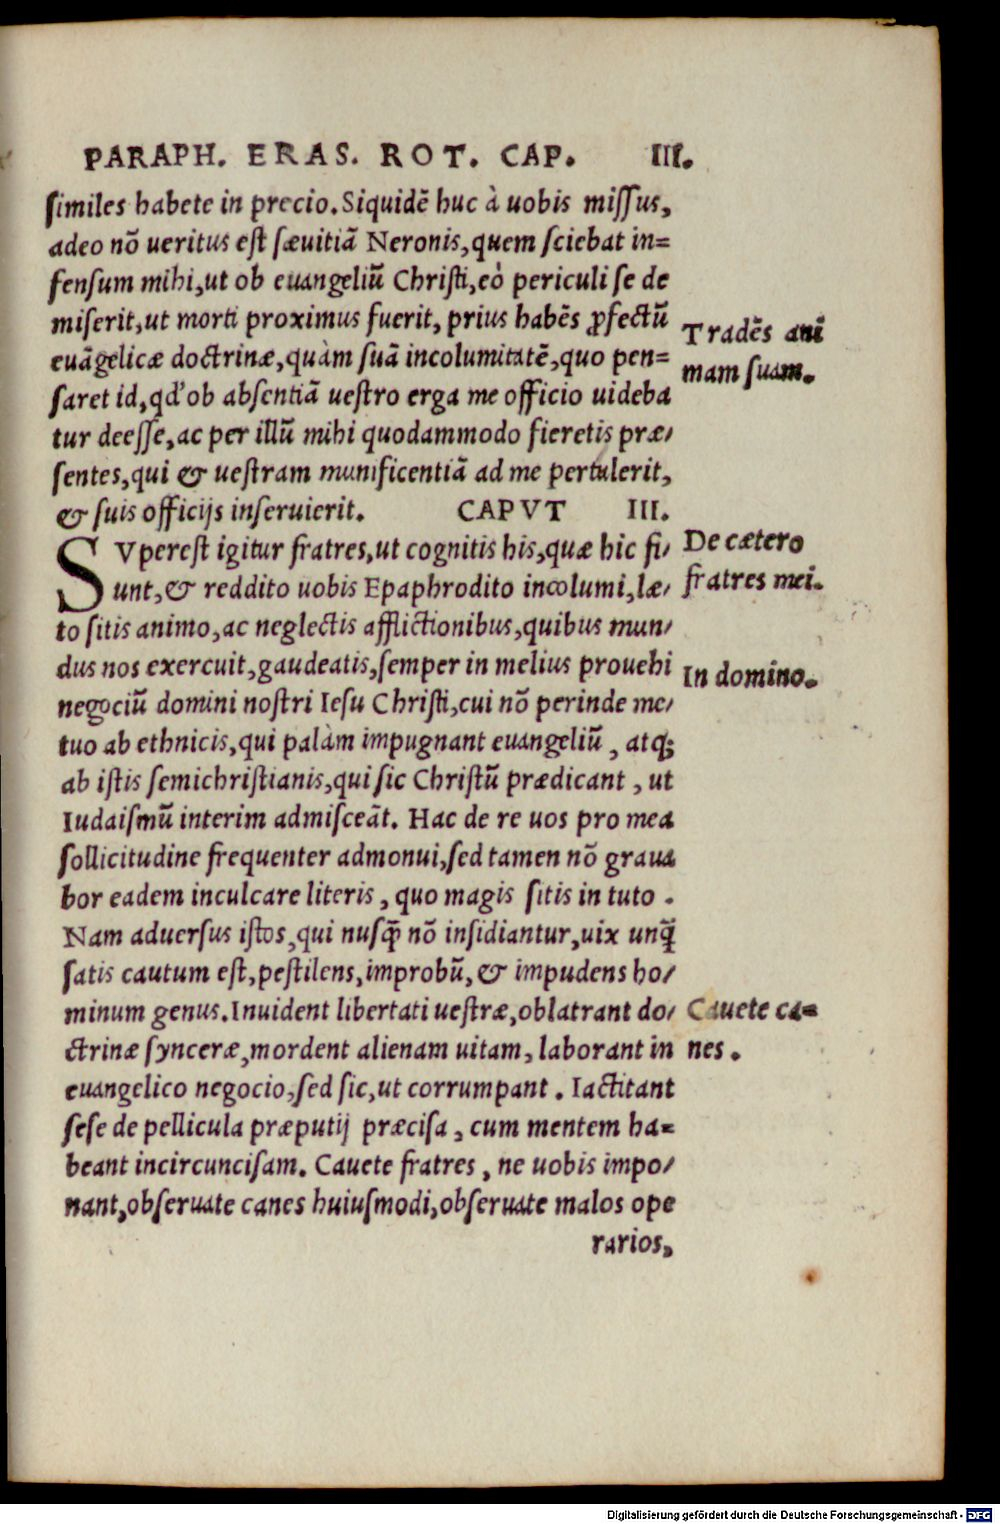 PARAPH. ERAS. ROT. CAP. III.
similes habete in precio. Siquidē huc à uobis missus,
adeo nō ueritus est sæuitiā Neronis, quem sciebat in=
fensum mihi, ut ob euangeliū Christi, eò periculi se de
miserit, ut morti proximus fuerit, prius habēs ꝓfectū
euāgelicæ doctrinæ, quàm suā incolumitatē, quo pen=
saret id, qd' ob absentiā uestro erga me officio uideba
tur deesse, ac per illū mihi quodammodo fieretis præ/
sentes, qui & uestram munificentiā ad me pertulerit,
& suis officijs inseruierit. CAPVT III.
SVperest igitur fratres, ut cognitis his, quæ hic fi/
unt, & reddito uobis Epaphrodito incolumi, læ/
to sitis animo, ac neglectis afflictionibus, quibus mun/
dus nos exercuit, gaudeatis, semper in melius prouehi
negociū domini nostri Iesu Christi, cui nō perinde me/
tuo ab ethnicis, qui palàm impugnant euangeliū, atq;
ab istis semichristianis, qui sic Christū prædicant, ut
Iudaismū interim admisceāt. Hac de re uos pro mea
sollicitudine frequenter admonui, sed tamen nō graua
bor eadem inculcare literis, quo magis sitis in tuto.
Nam aduersus istos, qui nusq̄ nō insidiantur, uix unq̄
satis cautum est, pestilens, improbū, & impudens ho/
minum genus. Inuident libertati uestræ, oblatrant do/
ctrinæ synceræ, mordent alienam uitam, laborant in
euangelico negocio, sed sic, ut corrumpant. Iactitant
sese de pellicula præputij præcisa, cum mentem ha=
beant incircuncisam. Cauete fratres, ne uobis impo/
nant, obseruate canes huiusmodi, obseruate malos ope
rarios,
Tradēs ani
mam suam.
De cætero
fratres mei.
In domino.
Cauete ca=
nes.
Digitalisierung gefördert durch die Deutsche Forschungsgemeinschaft - DFG